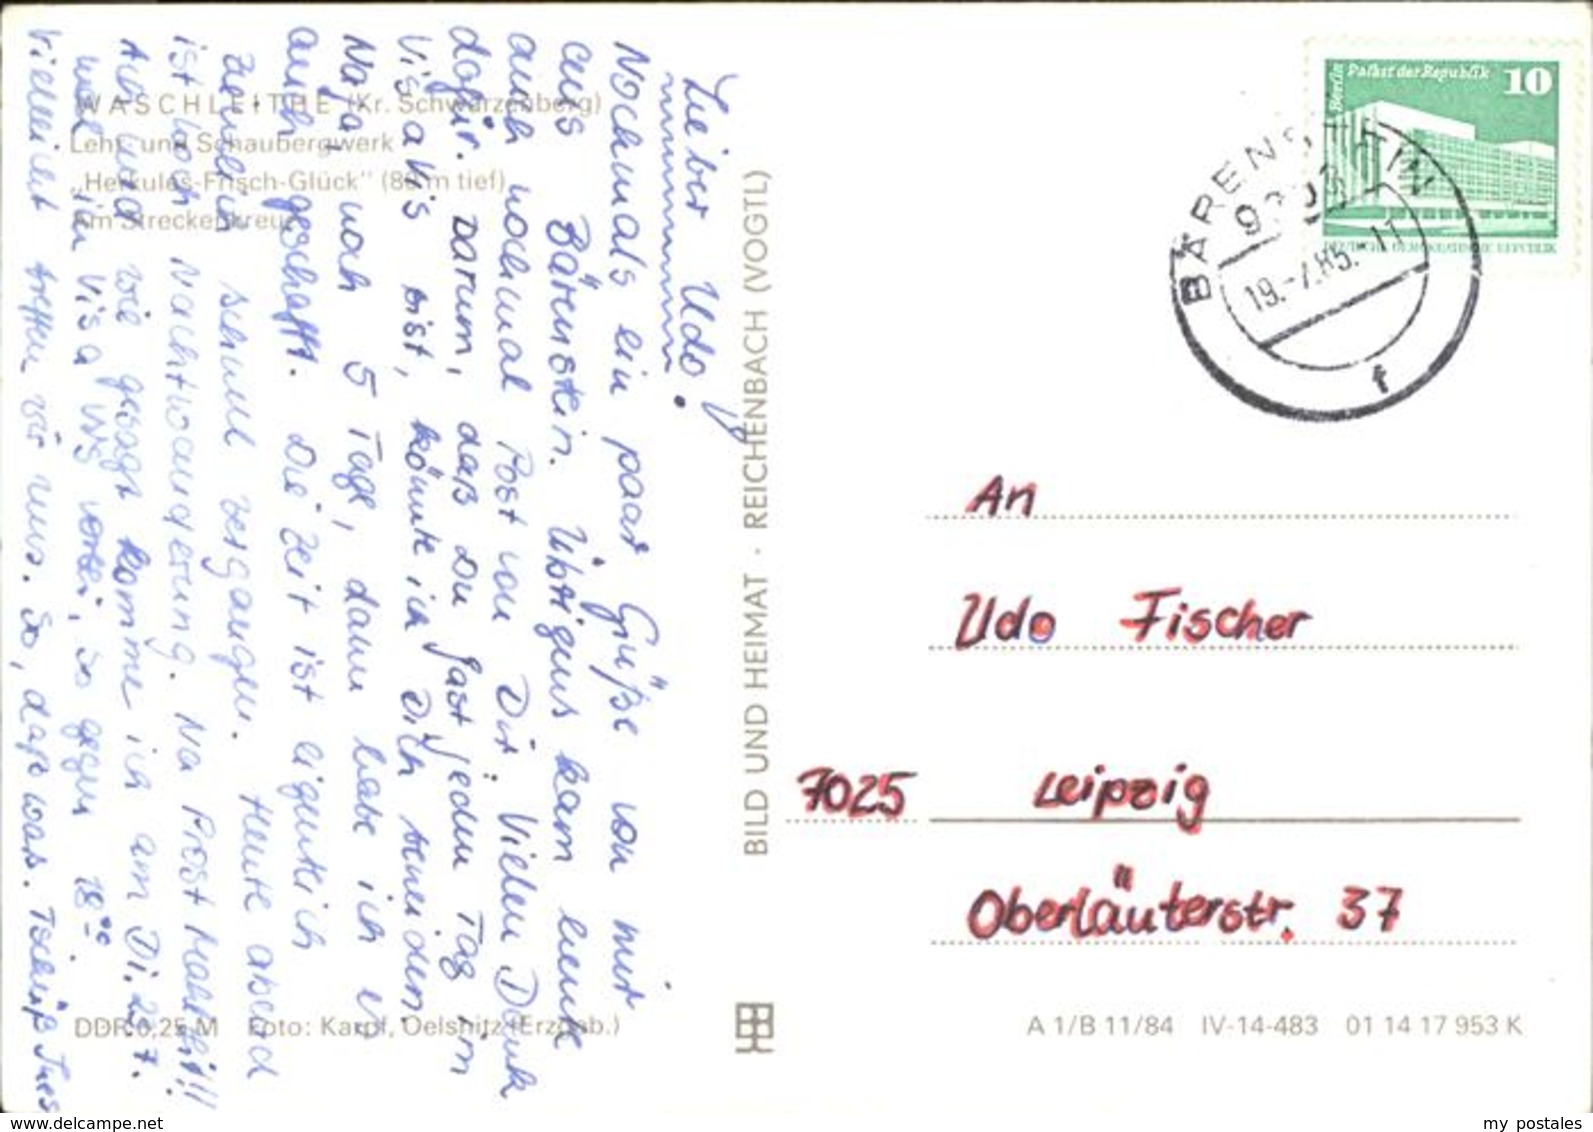 WASCHLEITHE (Kr. Schwarzenberg)
Lehr- und Schaubergwerk
„Herkules-Frisch-Glück" (80 m tief)
Am Streckenkreuz
Lieber Udo!
Nochmals ein paar Grüße von mir
aus Bärenstein. Übrigens kam heute
auch nochmal Post von Dir. Vielen Dank
dafür. Darum, daß Du fast jeden Tag im
Vis a Vis bist, könnte ich Dich beneiden.
Naja, noch 5 Tage, dann habe ich es
auch geschafft. Die Zeit ist eigentlich
ziemlich schnell vergangen. Heute abend
ist noch Nachtwanderung. Na Prost Mahlzeit!!
Ach und wie gesagt komme ich am Di. 23.7.
mal im Vis a Vis vorbei, so gegen 18°°.
Vielleicht treffen wir uns. So, das was. Tschüß Ines
BILD UND HEIMAT · REICHENBACH (VOGTL)
Berlin
Palast der Republik
10
DEUTSCHE DEMOKRATISCHE REPUBLIK
BÄRENSTEIN
19.-7.85.-11
f
An
Udo Fischer
7025 Leipzig
Oberläuterstr. 37
DDR 0,25 M Foto: Karpf, Oelsnitz (Erzgeb.)
A 1/B 11/84 IV-14-483 01 14 17 953 K
www.delcampe.net
my_postales